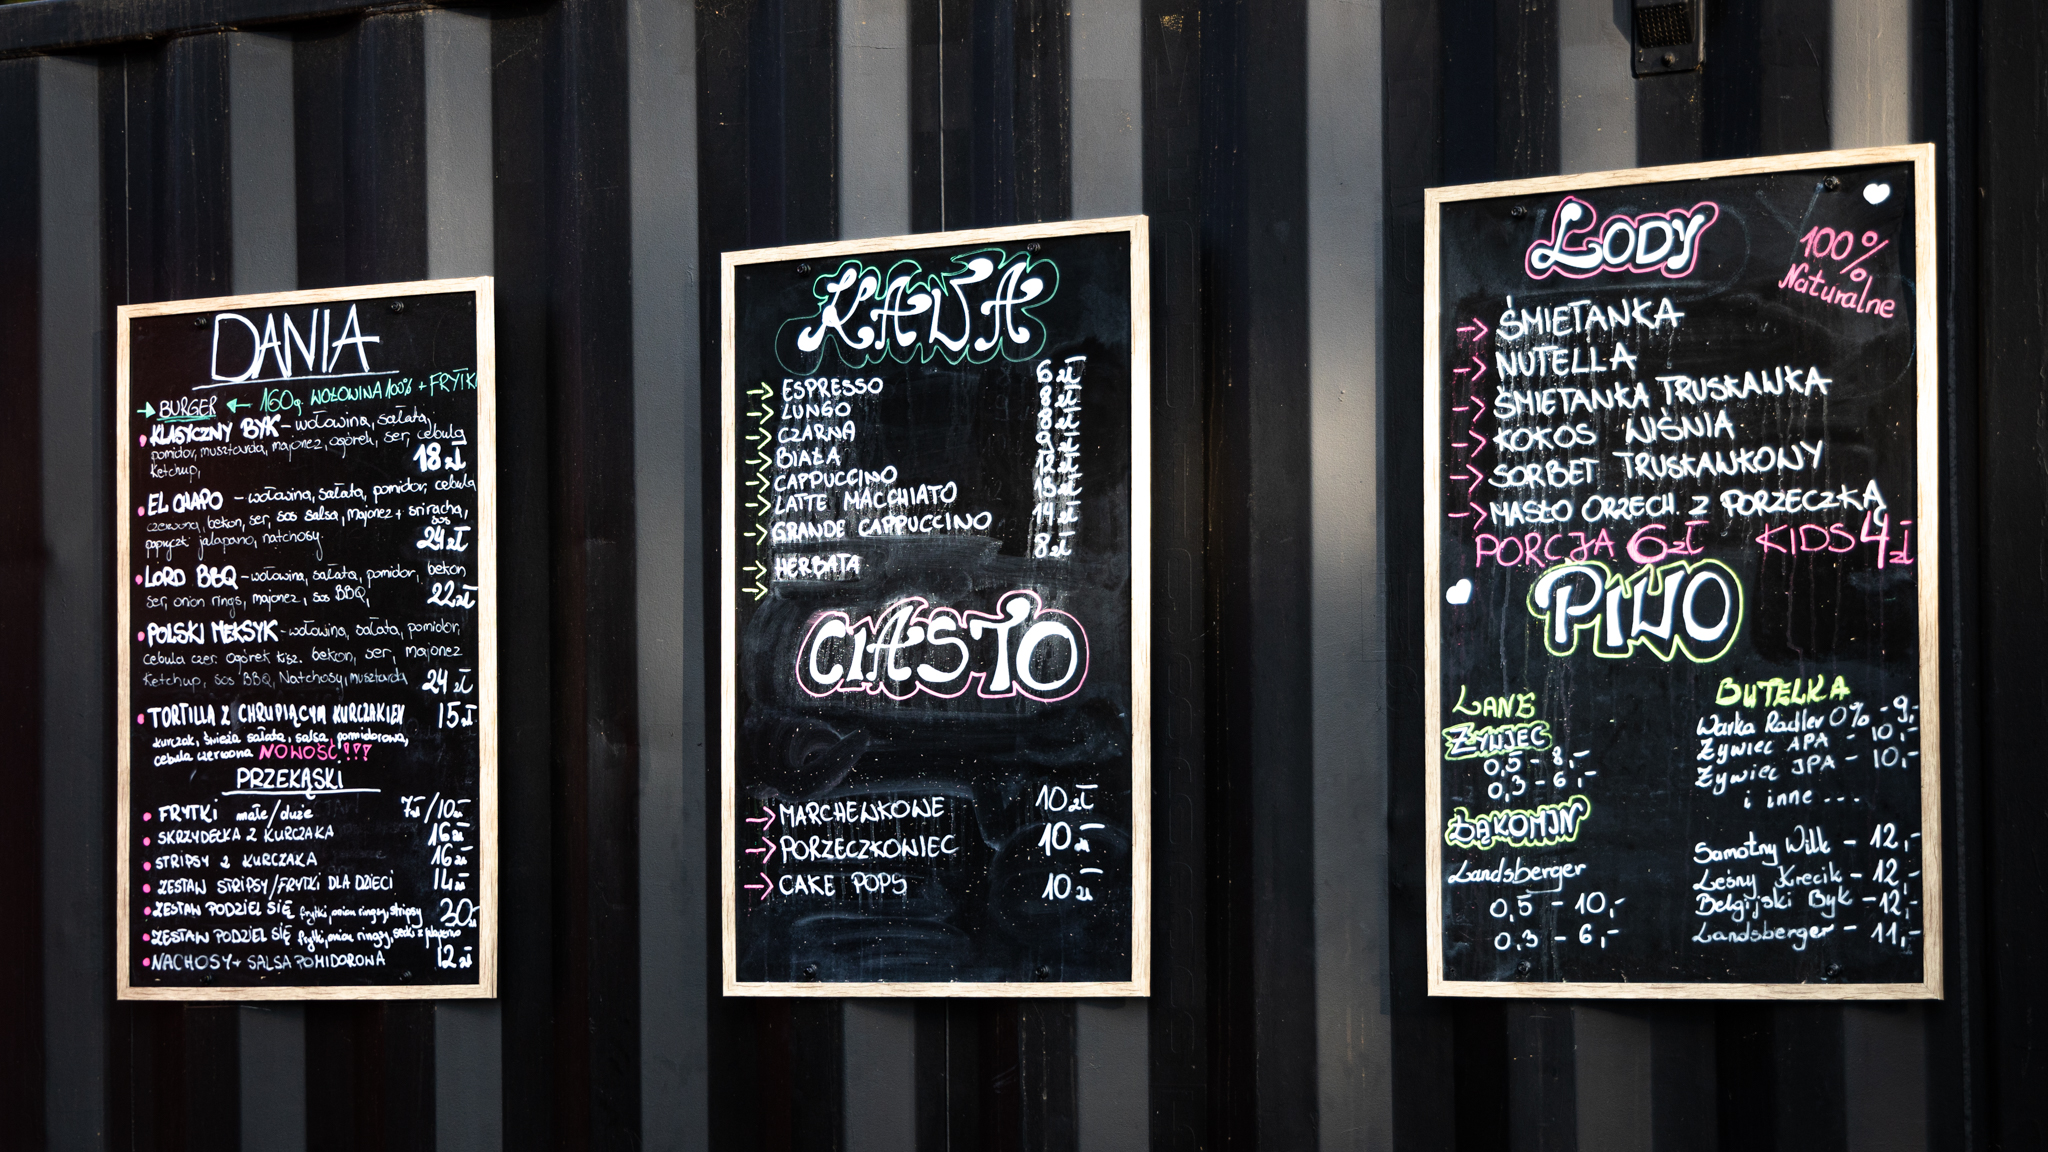 DANIA
BURGER 160g. WOŁOWINA 100% + FRYTKI
KLASYCZNY BYK - wołowina, sałata,
pomidor, musztarda, majonez, ogórek, ser, cebula
ketchup, 18 zł
EL CHAPO - wołowina, sałata, pomidor, cebula
czerwona, bekon, ser, sos salsa, majonez + sriracha, sos
papryczki jalapano, natchosy 24 zł
LORD BBQ - wołowina, sałata, pomidor, bekon
ser, onion rings, majonez, sos BBQ, 22 zł
POLSKI MEKSYK - wołowina, sałata, pomidor,
cebula czer. ogórek kisz. bekon, ser, majonez
ketchup, sos BBQ, Natchosy, musztarda 24 zł
TORTILLA Z CHRUPIĄCYM KURCZAKIEM 15 zł
kurczak, świeża sałata, salsa pomidorowa,
cebula czerwona NOWOŚĆ!!!
PRZEKĄSKI
FRYTKI małe/duże 7zł/10zł
SKRZYDEŁKA Z KURCZAKA 16 zł
STRIPSY Z KURCZAKA 16 zł
ZESTAW STRIPSY/FRYTKI DLA DZIECI 14 zł
ZESTAW PODZIEL SIĘ frytki, onion ringsy, stripsy 30,-
ZESTAW PODZIEL SIĘ frytki, onion ringsy,
NACHOSY + SALSA POMIDOROWA 12 zł
KAWA
ESPRESSO 6 zł
LUNGO 8 zł
CZARNA 8 zł
BIAŁA 9 zł
CAPPUCCINO 12 zł
LATTE MACCHIATO 13 zł
GRANDE CAPPUCCINO 14 zł
HERBATA 8 zł
CIASTO
MARCHEWKOWE 10 zł
PORZECZKOWIEC 10 zł
CAKE POPS 10 zł
LODY
100%
Naturalne
ŚMIETANKA
NUTELLA
ŚMIETANKA TRUSKAWKA
KOKOS WIŚNIA
SORBET TRUSKAWKOWY
MASŁO ORZECH. Z PORZECZKĄ
PORCJA 6zł KIDS 4zł
PIWO
LANE
ŻYWIEC
0,5 - 8,-
0,3 - 6,-
ŁĄKOMIN
Landsberger
0,5 - 10,-
0,3 - 6,-
BUTELKA
Warka Radler 0% - 9,-
Żywiec APA - 10,-
Żywiec JPA - 10,-
i inne ...
Samotny Wilk - 12,-
Leśny Krecik - 12,-
Belgijski Byk - 12,-
Landsberger - 11,-